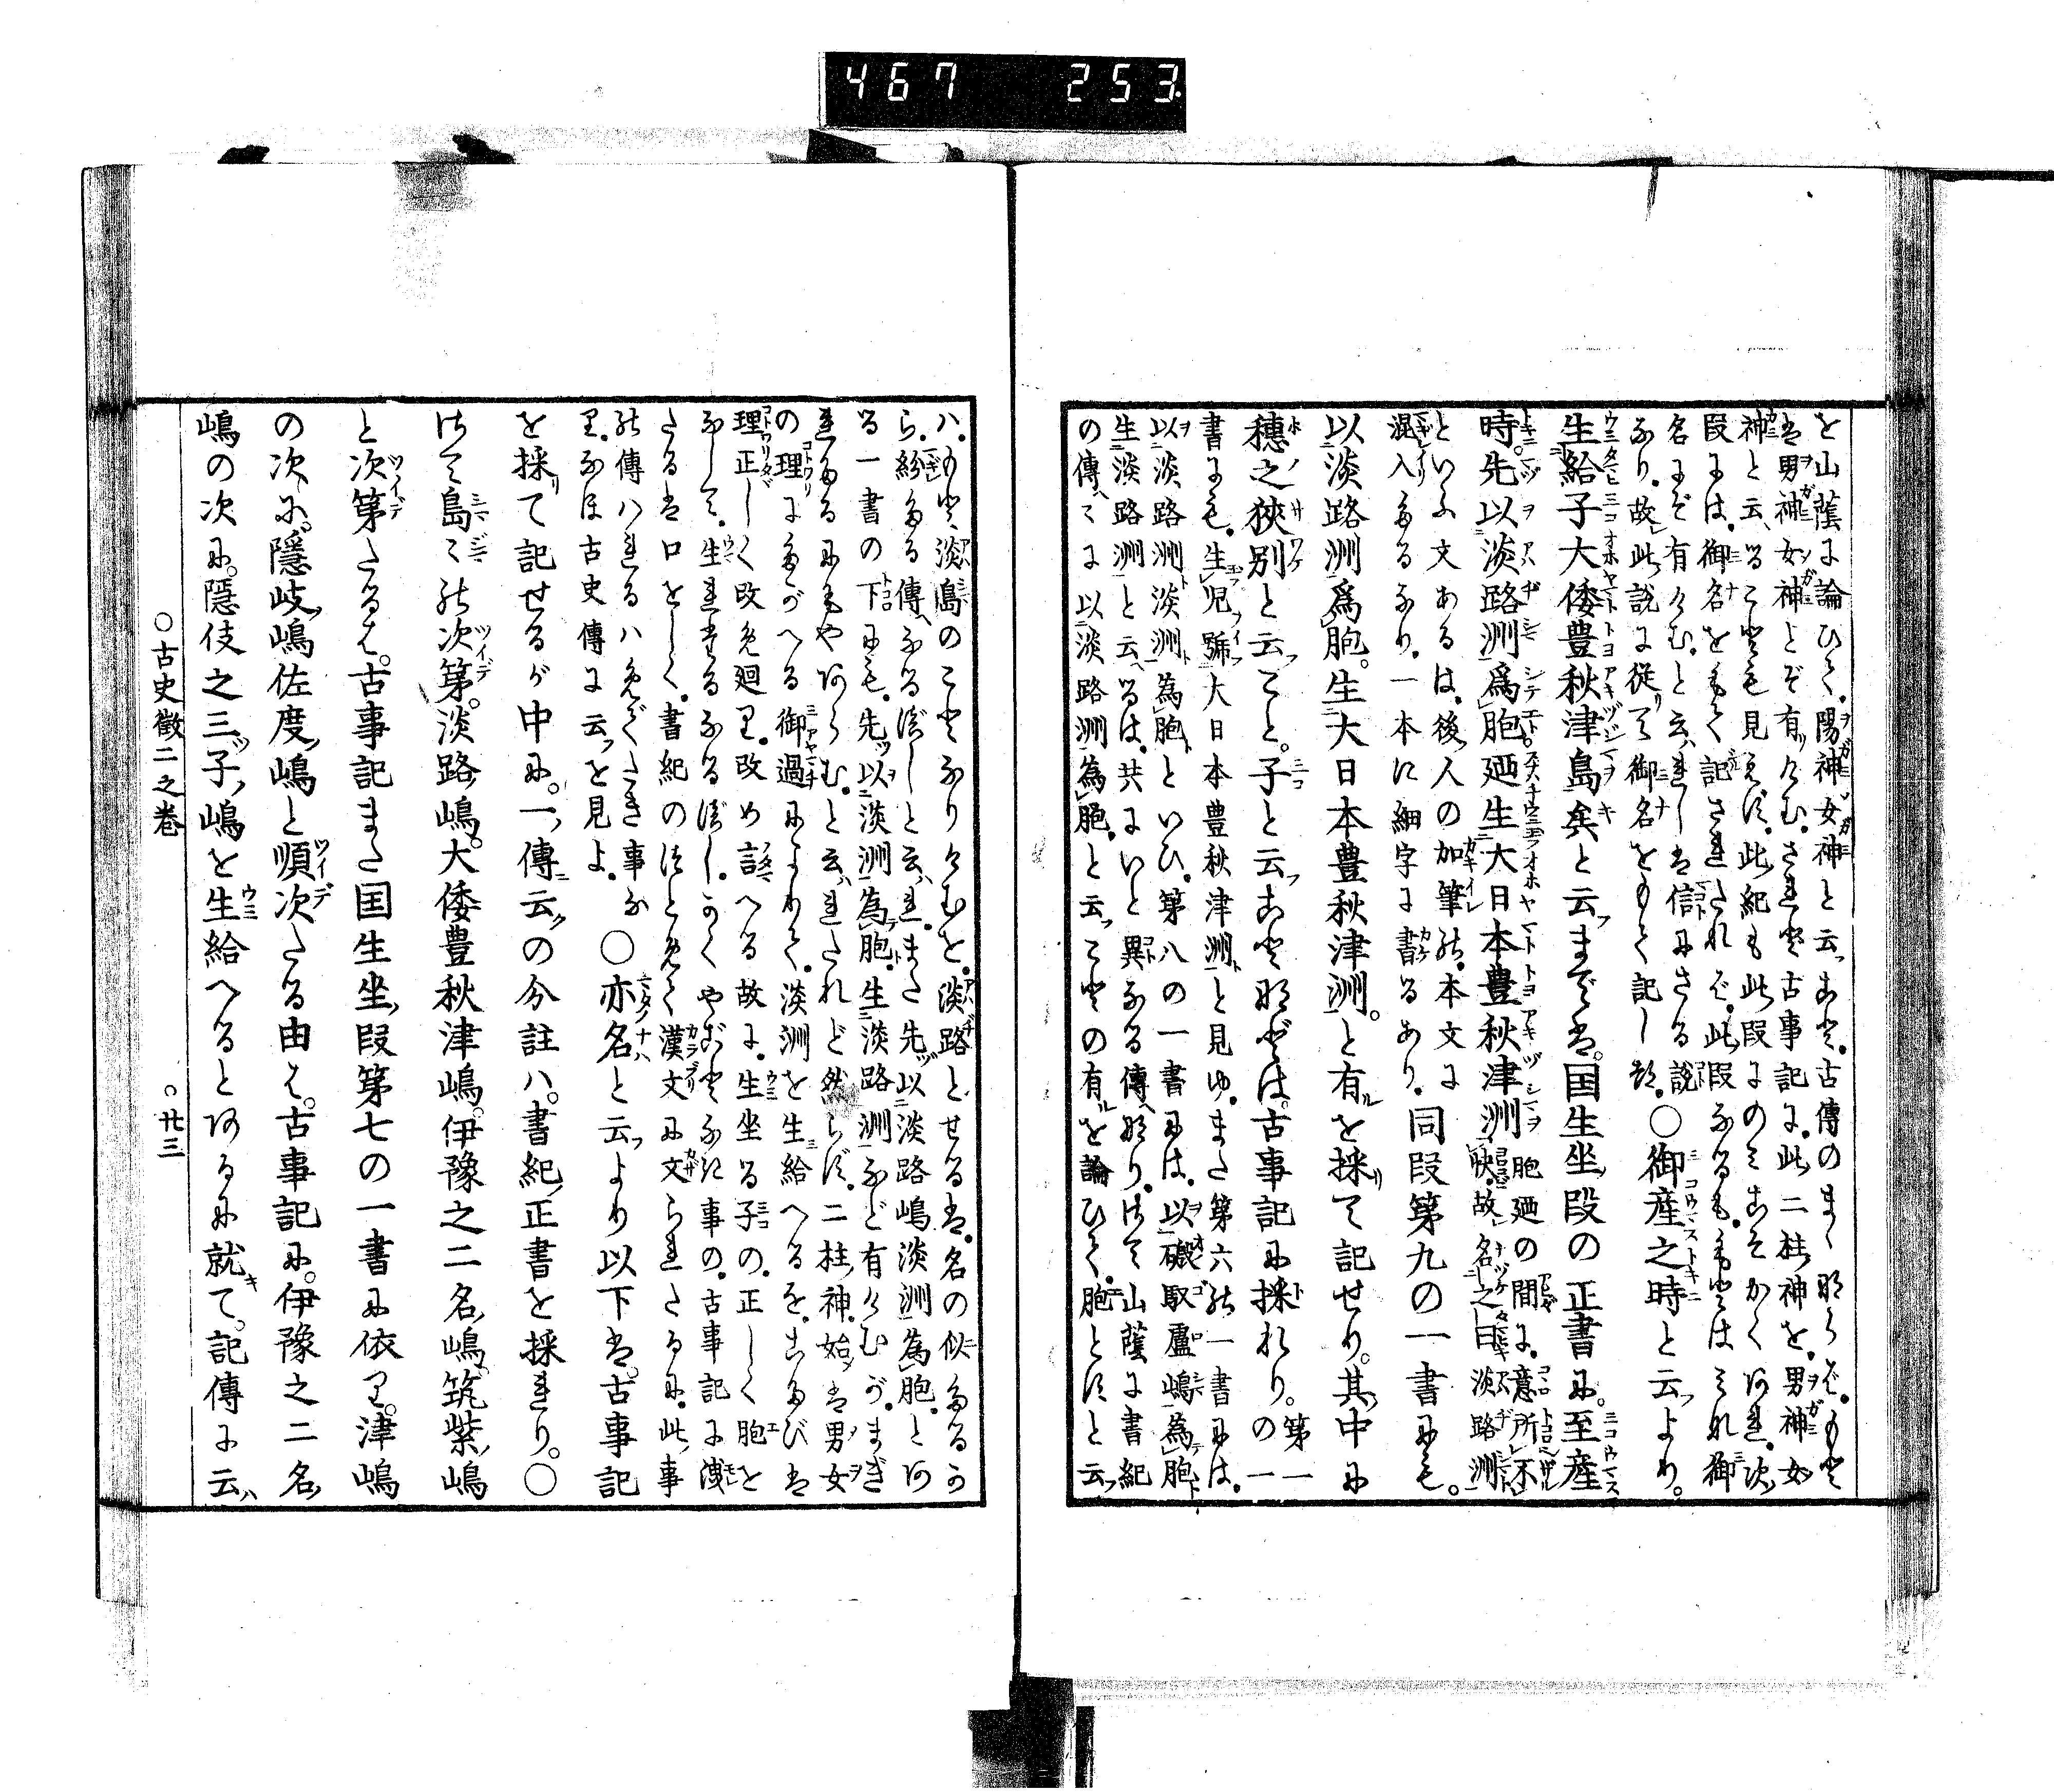 467 253
を山蔭に論ひて。陽神女神と云こと。古傳のまゝならず。もと
は男神女神とぞ有けむ。されど古事記に。此二柱神を。男神女
神と云ることも見えず。此紀も此段にのみこそかくあれ。次
段には。御名をもて記されたれば。此段なるも。もとはみな御
名にぞ有けむ。と云れしは信にさる説
なり。故此説に從て御名をもて記しぬ。○御産之時と云より。
生給子大倭豊秋津島矣と云までは。国生坐段の正書に。至産
時。先以淡路洲爲胞廼生大日本豊秋津洲。胞廼の間に。意所不快。故名之曰淡路洲
といふ文あるは。後人の加筆の。本文に
混入たるなり。一本に細字に書るあり。同段第九の一書にも。
以淡路洲爲胞。生大日本豊秋津洲。と有を採て記せり。其中に
穂之狹別と云こと。子と云ことなどは。古事記に採れり。第一の一
書にも。生児號大日本豊秋津洲と見ゆ。また第六の一書には。
以淡路洲淡洲為胞といひ。第八の一書には。以磤馭盧嶋為胞
生淡路洲と云へるは。共にいと異なる傳なり。さて山蔭に書紀
の傳々に以淡路洲為胞。と云ことの有を論ひて。胞とすと云
ハ。もと淡島のことなりけむを。淡路とせるは。名の似たるか
ら。紛たる傳なるべしと云れ。また先以淡路嶋淡洲為胞。とあ
る一書の下にも。先以淡洲為胞。生淡路洲など有けむが。まぎ
れたるにもやあらむ。と云れたれど然らず。二柱神。始は男女
の理にたがへる御過によりて。淡洲を生給へるを。こたびは
理正しく改め廻り。改め詔へる故に。生坐る子の。正しく胞を
なして。生れたるなるべし。かくやむごとなき事の。古事記に洩
たるは口をしく。書紀の法とめで漢文に文られたるに。此事
の傳ハれるハめでたき事な
り。なほ古史傳に云を見よ。○亦名と云より以下は。古事記
を採て記せるが中に。一傳云の分註ハ。書紀正書を採れり。○
さて島々の次第。淡路嶋。大倭豊秋津嶋。伊豫之二名嶋。筑紫嶋
と次第たるは。古事記また国生坐段第七の一書に依り。津嶋
の次に。隱岐嶋佐度嶋と順次たる由は。古事記に。伊豫之二名
嶋の次に。隱伎之三子嶋を生給へるとあるに就て。記傳に云
○古史徴二之巻 ○廿三